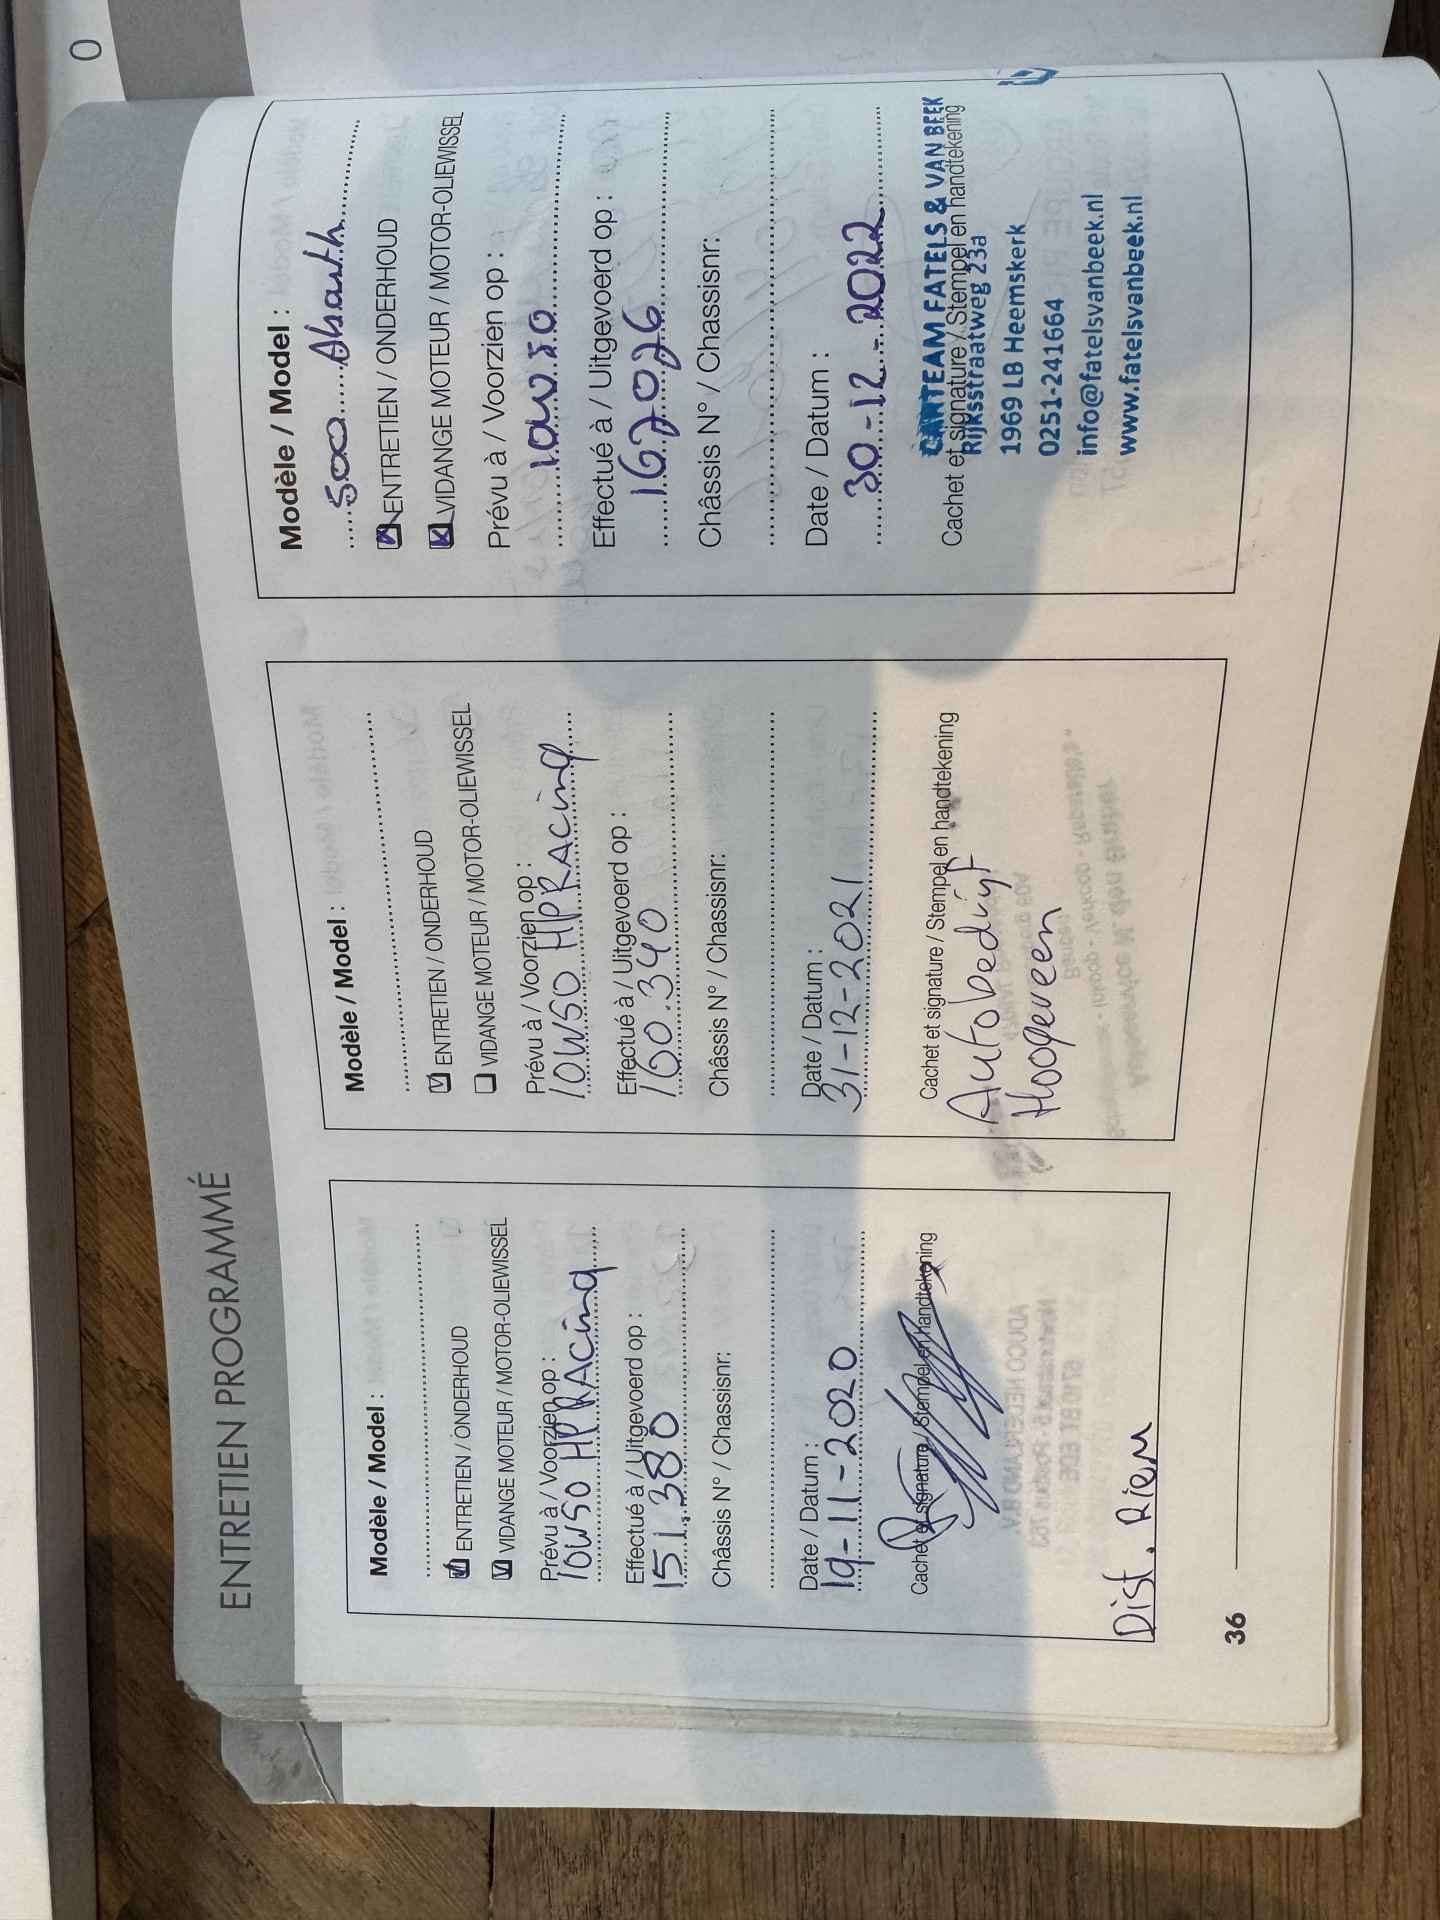 O
ENTRETIEN PROGRAMMÉ
Modèle / Model :
ENTRETIEN / ONDERHOUD
VIDANGE MOTEUR / MOTOR-OLIEWISSEL
Prévu à / Voorzien op :
10W50 HPRACing
Effectué à / Uitgevoerd op :
151.380
Châssis N° / Chassisnr:
Date / Datum :
19-11-2020
Cachet et signature / Stempel en handtekening
Dist. Riem
Modèle / Model :
ENTRETIEN / ONDERHOUD
VIDANGE MOTEUR / MOTOR-OLIEWISSEL
Prévu à / Voorzien op :
10W50 HPRACing
Effectué à / Uitgevoerd op :
160.340
Châssis N° / Chassisnr:
Date / Datum :
31-12-2021
Cachet et signature / Stempel en handtekening
Autobedrijf
Hoogeveen
Modèle / Model :
500 Abarth
ENTRETIEN / ONDERHOUD
VIDANGE MOTEUR / MOTOR-OLIEWISSEL
Prévu à / Voorzien op :
10W50
Effectué à / Uitgevoerd op :
167026
Châssis N° / Chassisnr:
Date / Datum :
30-12-2022
CARTEAM FATELS & VAN BEEK
Cachet et signature / Stempel en handtekening
Rijksstraatweg 23a
1969 LB Heemskerk
0251-241664
info@fatelsvanbeek.nl
www.fatelsvanbeek.nl
36